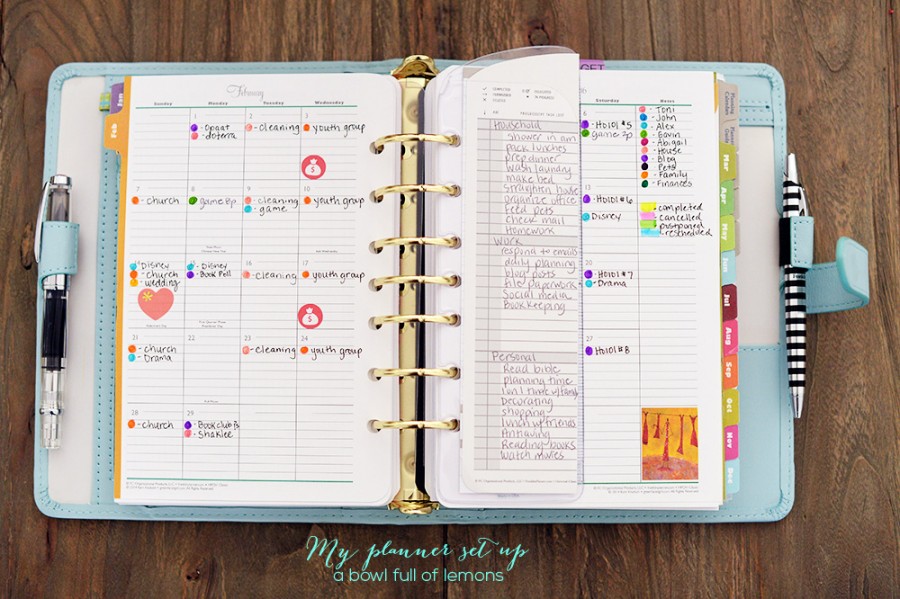 February
Sunday Monday Tuesday Wednesday
1 2 3
- cleaning
- youth group
$
7 8 9 10
- church
- cleaning
- game
- youth group
14 15 16 17
Disney
- church
- wedding
- Disney
- Book
- cleaning
- youth group
$
21 22 23 24
- church
- Drama
- cleaning
- youth group
28 29
- church
- Bookclub
- Shaklee
GET
Household
shower
pack lunches
prep dinner
wash laundry
make bed
straighten house
organize office
feed pets
check mail
Homework
Work
respond to emails
daily planning
blog posts
file paperwork
Social media
Bookkeeping
Personal
Read bible
planning time
Decorating
shopping
lunch w/ friends
Antiquing
Reading books
watch movies
Saturday Notes
6
- HO101 #5
13
- HO101 #6
- Disney
20
- HO101 #7
- Drama
27
- HO101 #8
- Toni
- John
- Alex
- Gavin
- Abigail
- House
- Blog
- Pets
- Family
- Finances
- completed
- cancelled
- postponed
- rescheduled
Feb
Mar
Apr
May
Jun
Jul
Aug
Sep
Oct
Nov
Dec
My planner set up
a bowl full of lemons